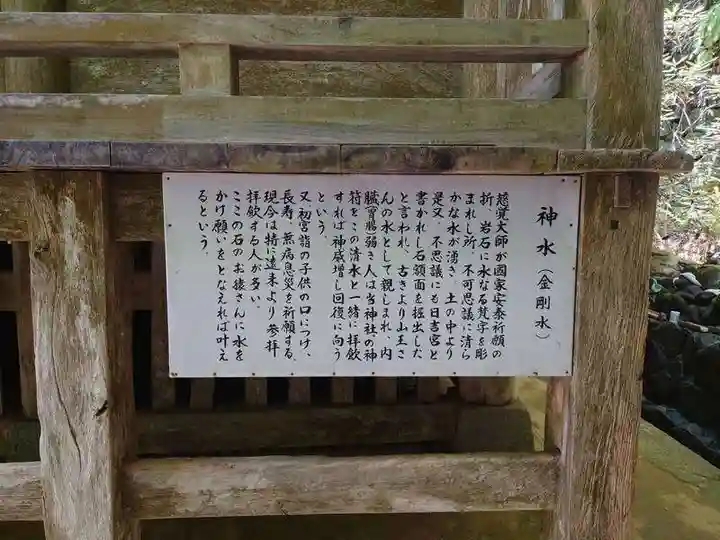 神水（金剛水）
慈覚大師が國家安泰祈願の
折、岩石に水なる梵字を彫
まれし所、不可思議に清ら
かな水が湧き、土の中より
是又、不思議にも日吉宮と
書かれし石額面を掘出した
と言われ、古きより山王さ
んの水として親しまれ、内
臓胃腸弱き人は当神社の神
符をこの清水と一緒に拝飲
すれば神威増し回復に向う
という。
又初宮詣の子供の口につけ、
長寿、無病息災を祈願する。
現今は特に遠来より参拝
拝飲する人が多い。
ここの石のお猿さんに水を
かけ願いをとなえれば叶え
るという。